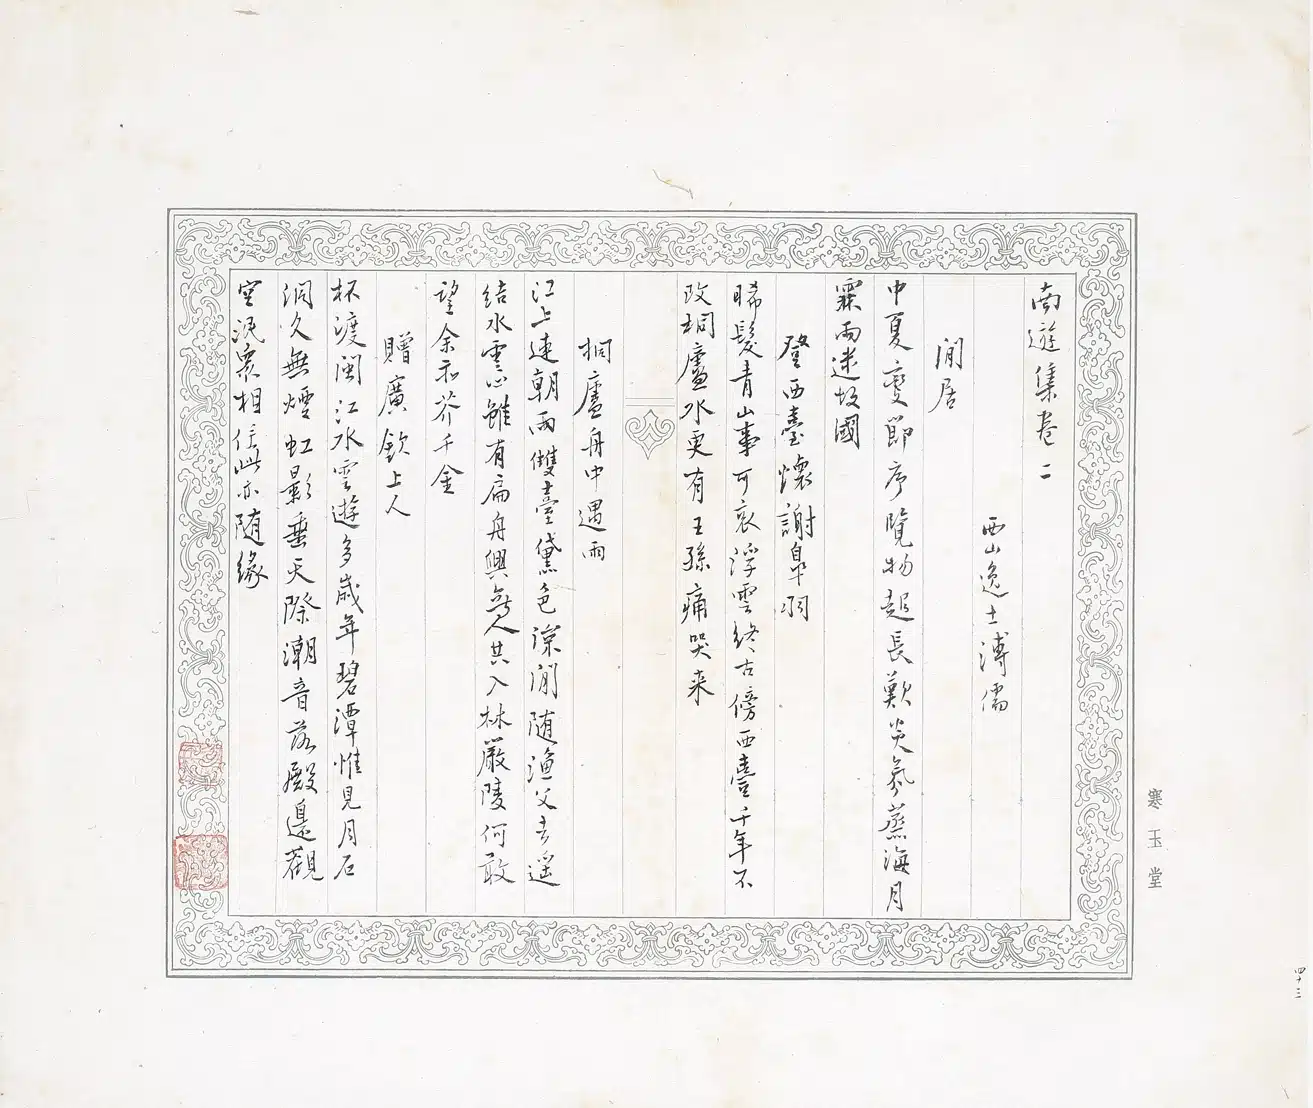 南遊集卷二
西山逸士溥儒
閒居
中夏變節序覽物起長歎炎氣蒸海月
霖雨迷故國
登西臺懷謝皋羽
晞髮青山事可哀浮雲終古傍西臺千年不
改桐廬水更有王孫痛哭来
桐廬舟中遇雨
江上連朝雨雙臺黛色深閒随漁父去遥
結水雲心雖有扁舟興無人共入林嚴陵何敢
望余亦芥千金
贈廣欽上人
杯渡閩江水雲遊多歲年碧潭惟見月石
洞久無煙虹影垂天際潮音落殿邊觀
空泯衆相住此亦随緣
寒玉堂
四十三